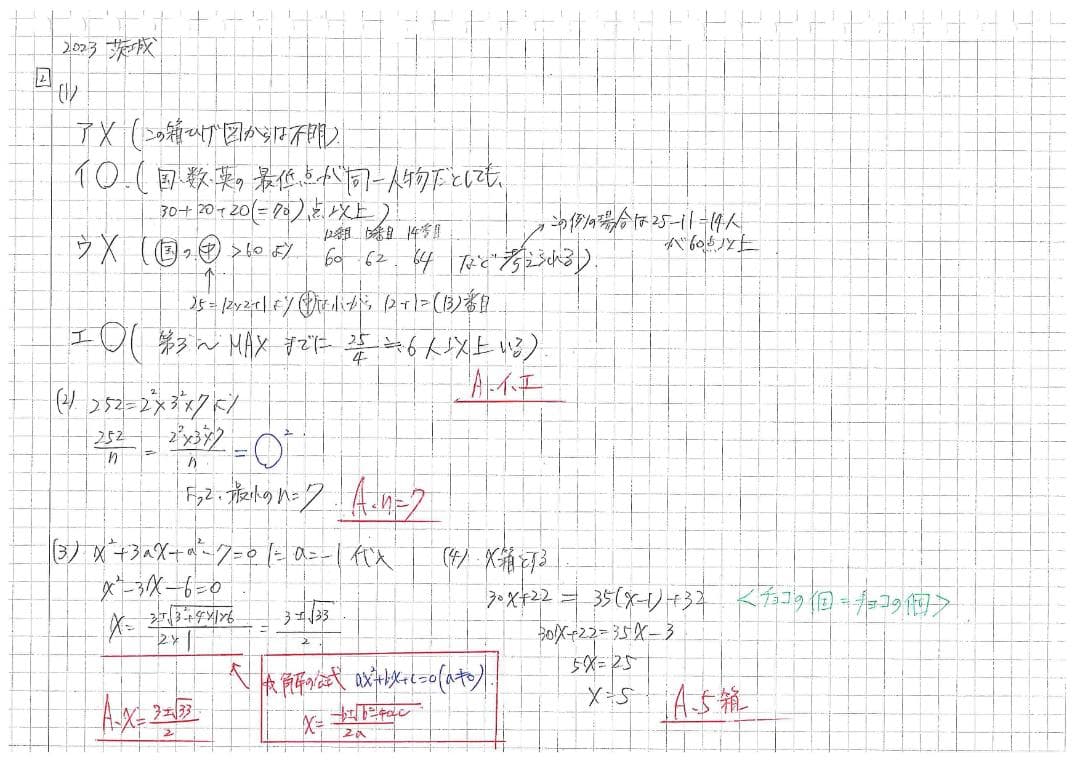 2023 茨城
2
(1)
ア× (この箱ひげ図からは不明)
イ○.(国、数、英の最低点が同一人物だとしても、
30+20+20(=70)点以上)
ウ× (国の中>60より 12番目 13番目 14番目
60 62 64 などで考えられる)
→この例の場合は25-11=14人
が60点以上
25=12×2+1より中は小から12+1=(13)番目
エ○(第3〜MAXまでに 25/4≒6人以上いる)
A.イ、エ
(2) 252=2²×3²×7より
252/n = 2²×3²×7/n = ○²
よって、最小のn=7
A.n=7
(3) x²+3ax+a²-7=0 に a=-1 代入
x²-3x-6=0
x= 3±√3²+4×1×6/2×1 = 3±√33/2
A.x=3±√33/2
解の公式 ax²+bx+c=0(a≠0)
x= -b±√b²-4ac/2a
(4) x箱とする
30x+22 = 35(x-1)+32 <チョコの個=チョコの個>
30x+22=35x-3
5x=25
x=5
A.5箱